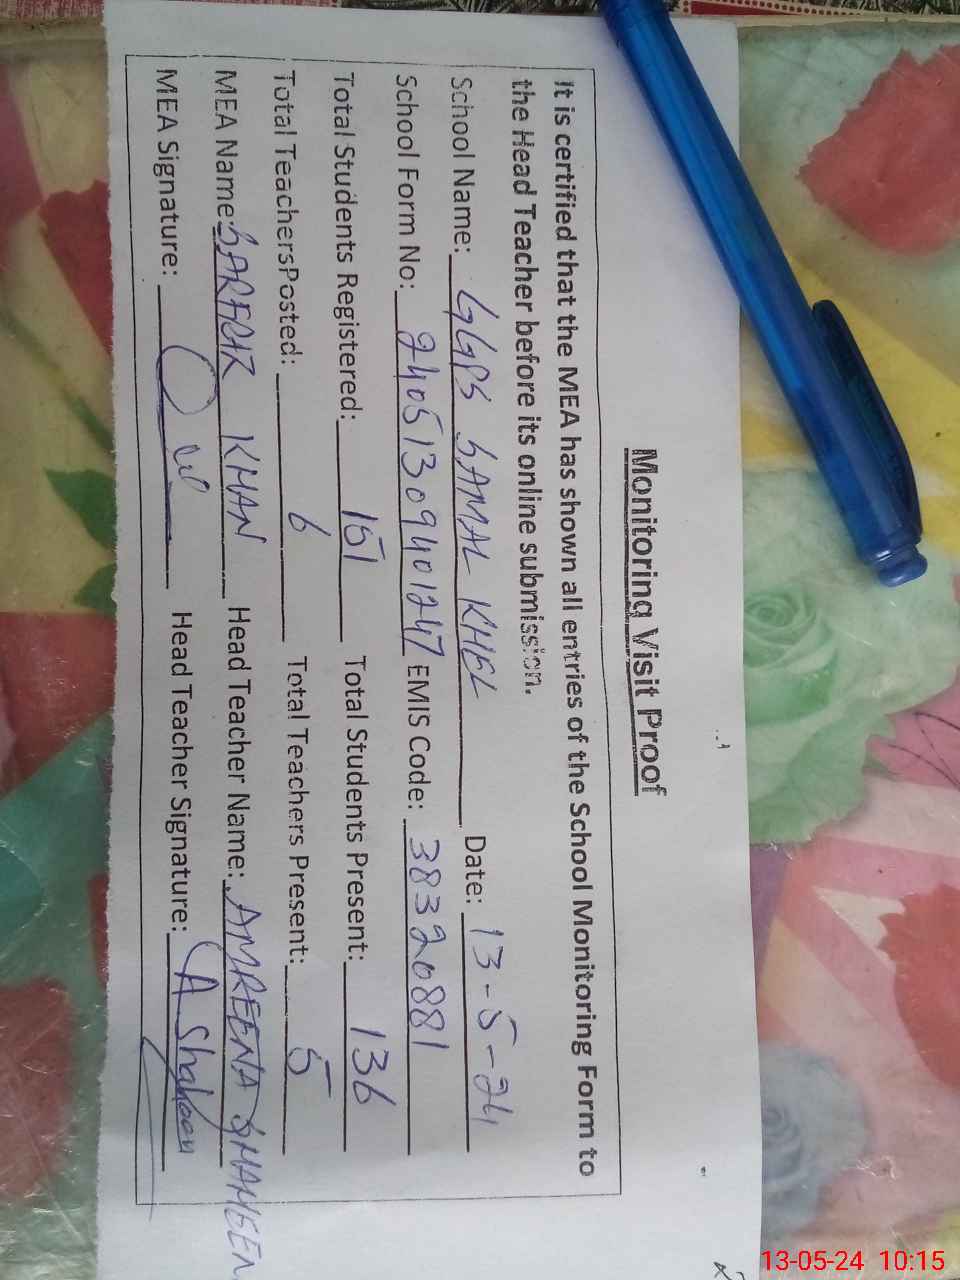 Monitoring Visit Proof
It is certified that the MEA has shown all entries of the School Monitoring Form to
the Head Teacher before its online submission.
School Name: GGPS JAMAL KHEL Date: 13-5-24
School Form No: 24051309401247 EMIS Code: 38320881
Total Students Registered: 151 Total Students Present: 136
Total TeachersPosted: 6 Total Teachers Present: 5
MEA Name: KHAN Head Teacher Name: AMREENA SHAHEEN
MEA Signature: Head Teacher Signature: A Shaheen
13-05-24 10:15